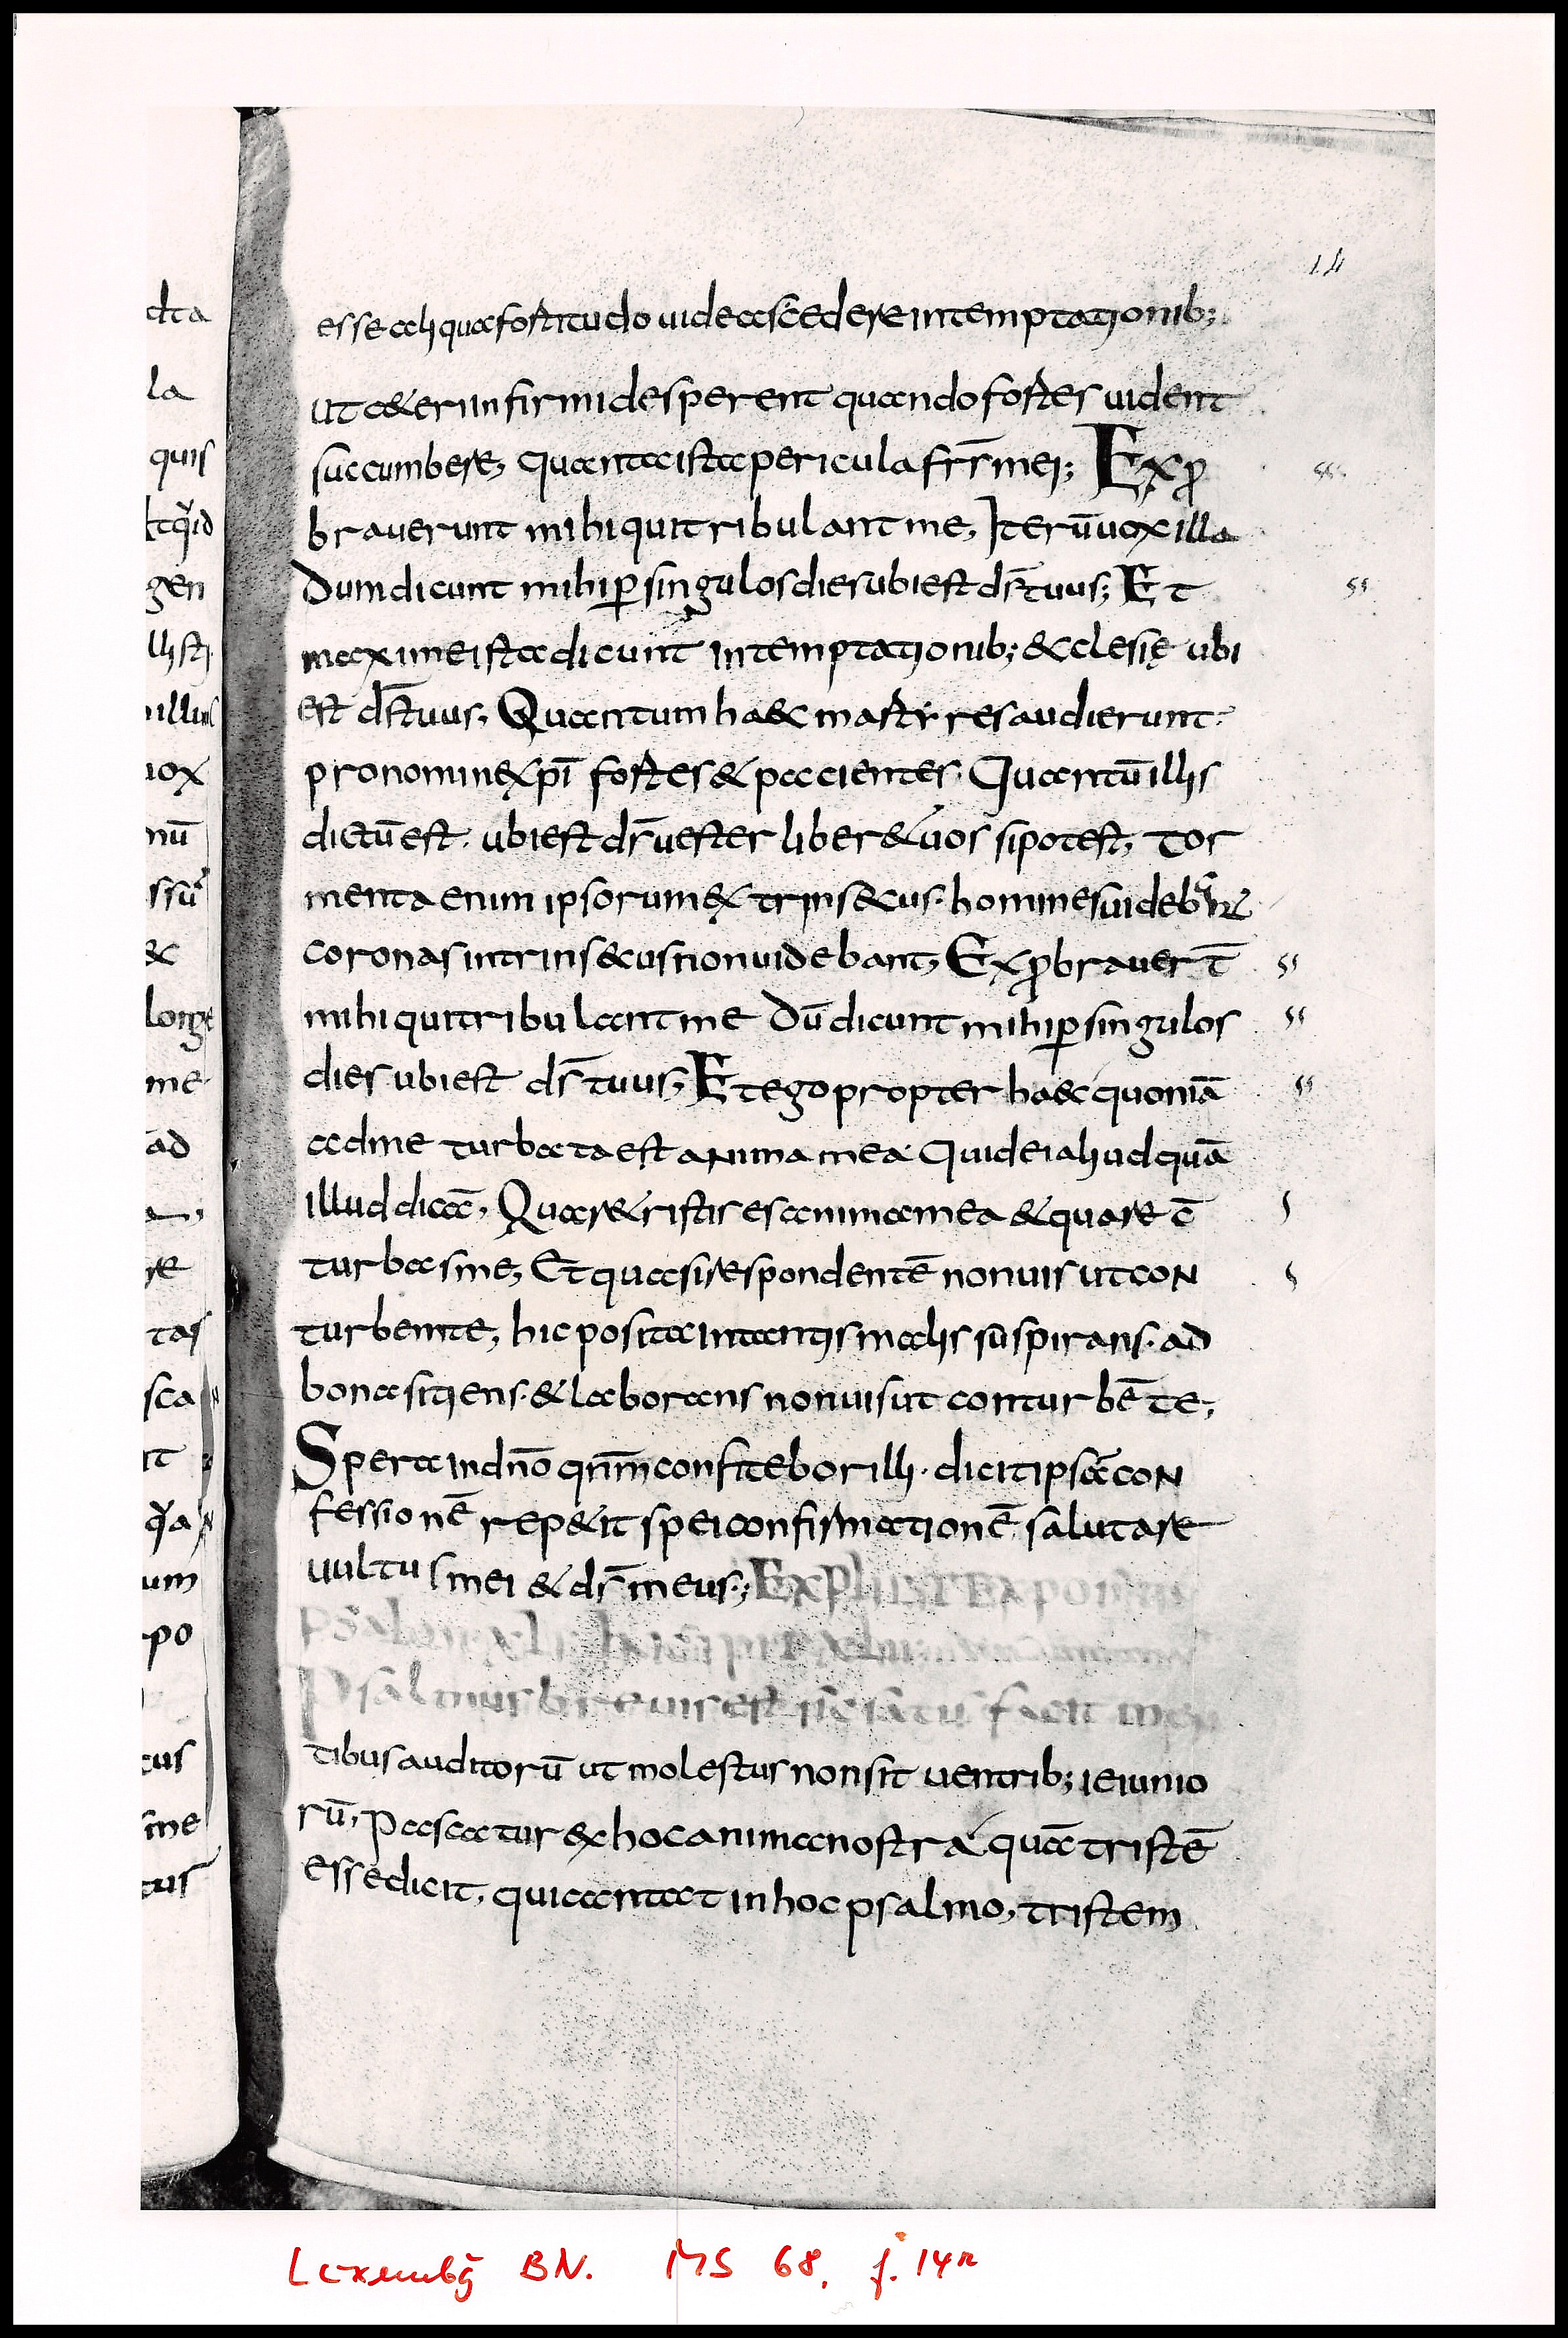 14
esse aliqua fortitudo uideas cedere in temptationib;
ut & ceteri infirmi desperent quando fortes uident
succumbere, quanta ista pericula frr̄ mei; Exꝓ
brauerunt mihi qui tribulant me, Iterū uox illa
Dum dicunt mihi ꝑ singulos dies ubi est dr̄ tuus; Et
maxime ista dicunt in temptationib; &clesię ubi
est dr̄ tuus, Quantum ha&c martyres audierunt
pro nomine xp̄i fortes & pacientes, Quantū illis
dictū est, ubi est dr̄ uester liber& uos si potest, Tor
menta enim ipsorum extrins&cus homines uideb
coronas intrins&cus non uidebant, Exꝓbrauer̄t
mihi qui tribulant me Dū dicunt mihi ꝑ singulos
dies ubi est dr̄ tuus, Et ego propter ha&c quoniā
ad me turbata est anima mea Quid ei aliud quā
illud dicā, Quare tristis es anima mea & quare c̄
turbas me, Et quasi respondentē non uis ut con
turbem te, hic posita in tantis malis suspirans ad
bona sitiens & laborans non uis ut conturbē te,
Spera in dn̄o qnm̄ confitebor illi dicit ipsā con
fessionē rep&it spei confirmationē salutare
uultus mei & dr̄ meus; Explicit
Psalmus breuis est
tibus auditorū ut molestus non sit uentrib; ieiunio
rū, Pascatur ex hoc anima nostra quā tristē
esse dicit, qui cantat in hoc psalmo, tristem
dta
la
quis
gen
nū
&
longe
me
ad
re
tas
sca
it
um
po
tus
me
tus
Luxembg BN. MS 68, f. 14r